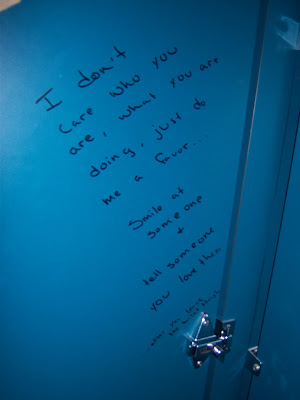 I don't
care who you
are, what you are
doing, just do
me a favor....
Smile at
someone
+
tell someone
you love them